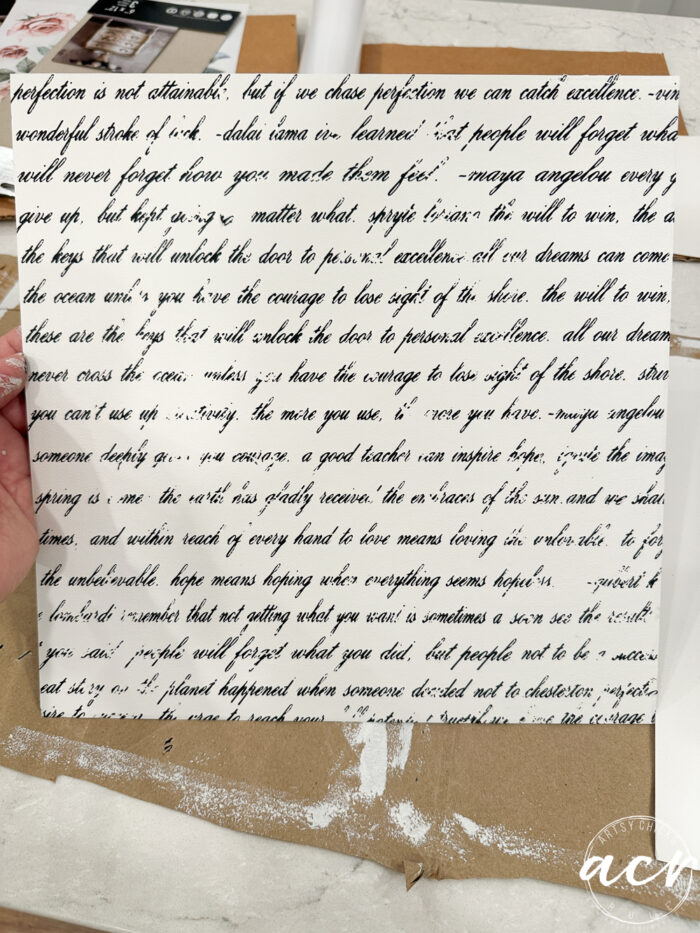 6" x 12"
perfection is not attainable, but if we chase perfection we can catch excellence. -vin
wonderful stroke of luck. -dalai lama learned that people will forget wha
will never forget how you made them feel. -maya angelou every g
give up, but kept going matter what. the will to win, the
the keys that will unlock the door to personal excellence all our dreams can come
the ocean unless you have the courage to lose sight of the shore. the will to win,
these are the keys that will unlock the door to personal excellence. all our dream
never cross the ocean unless you have the courage to lose sight of the shore.
you can't use up creativity. the more you use, more you have. -maya angelou
someone deeply you courage. a good teacher can inspire hope, ignite the imag
spring is the earth has gladly received the embraces of the sun and we shall
times, and within reach of every hand to love means loving the unlovable. to for
the unbelievable. hope means hoping when everything seems hopeless.
lombardi remember that not getting what you want is sometimes a soon see the results
you said, people will forget what you did, but people not to be a success
eat story on the planet happened when someone decided not to chesterton perfection
the urge to reach your
acr